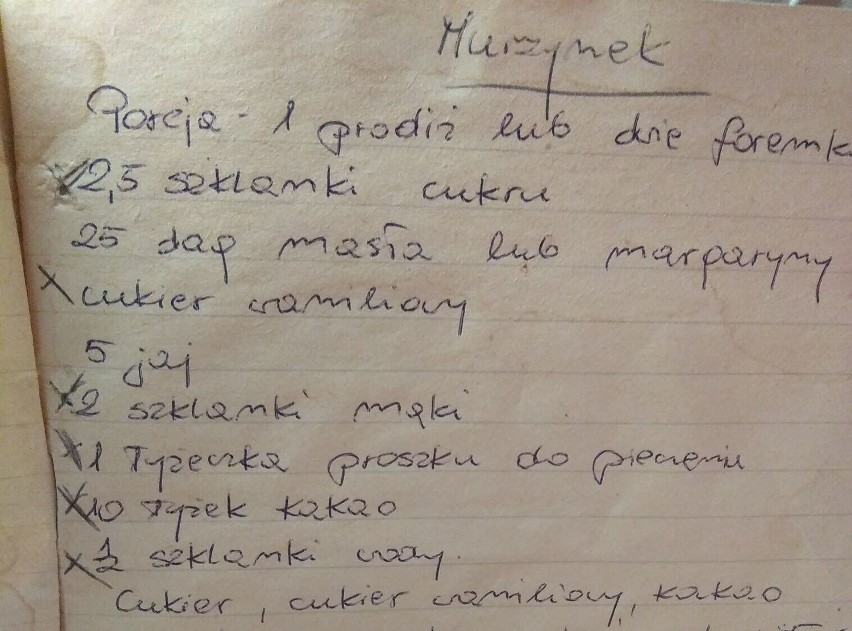 Murzynek
Porcja - 1 prodiż lub dwie foremk
2,5 szklanki cukru
25 dag masła lub margaryny
cukier waniliowy
5 jaj
2 szklanki mąki
1 łyżeczka proszku do pieczenia
10 łyżek kakao
1/2 szklanki wody.
Cukier, cukier waniliowy, kakao